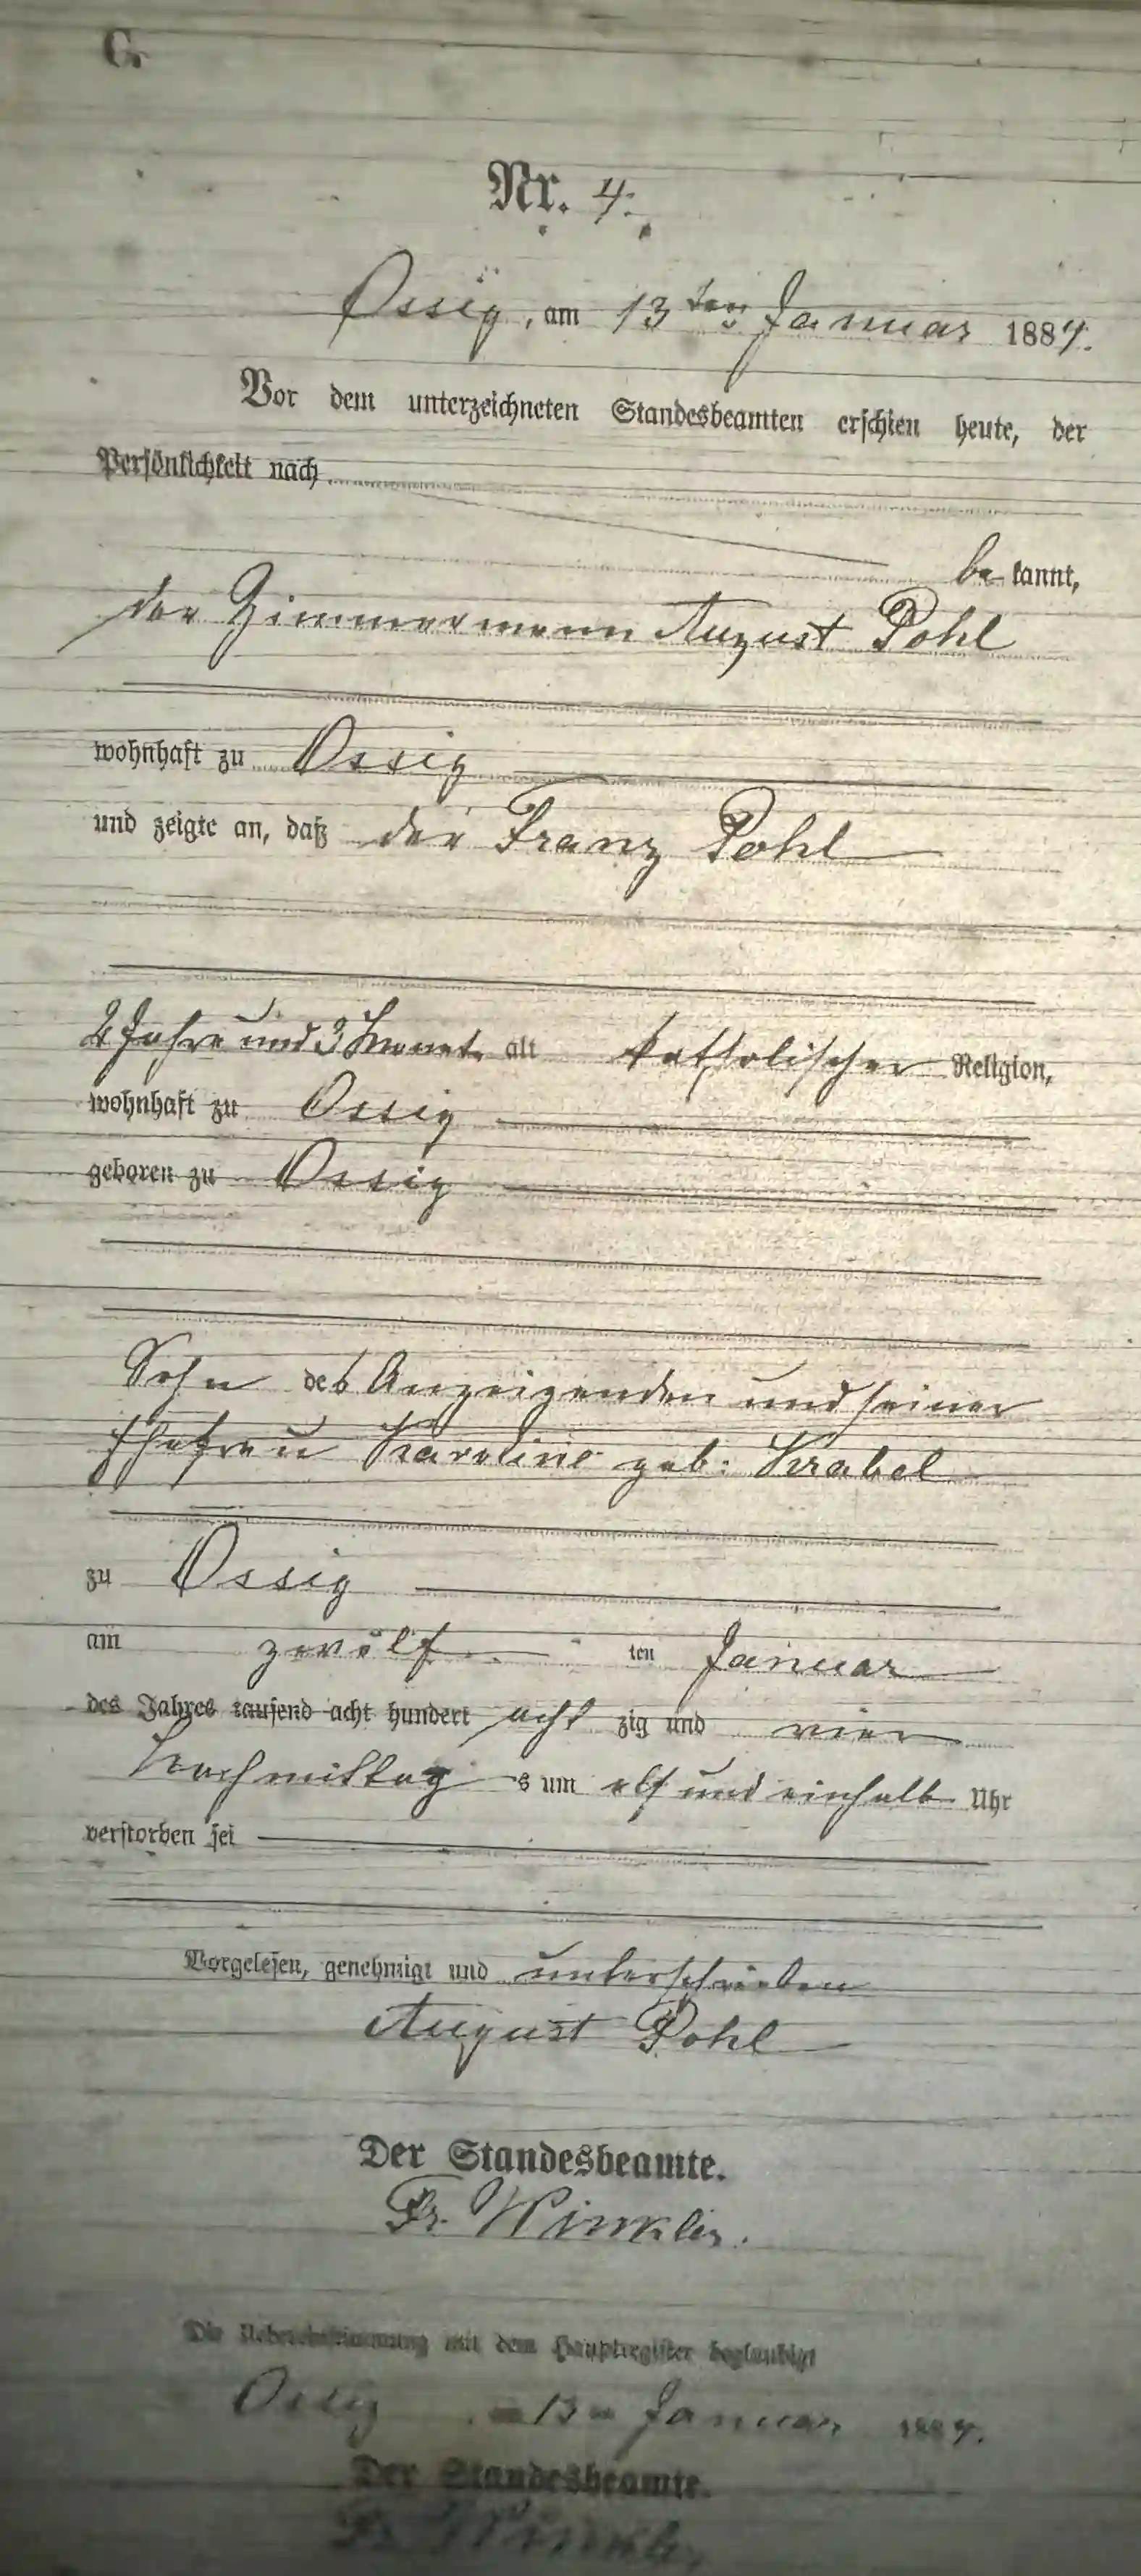 C.
Nr. 4.
Ossig, am 13ten Januar 1884.
Vor dem unterzeichneten Standesbeamten erschien heute, der
Persönlichkeit nach
be kannt,
der Zimmermann August Pohl
wohnhaft zu Ossig
und zeigte an, daß der Franz Pohl
2 Jahre und 3 Monat alt katholischer Religion,
wohnhaft zu Ossig
geboren zu Ossig
Sohn des Anzeigenden und seiner
Ehefrau Karoline geb: Krabel
zu Ossig
am zwölf ten Januar
des Jahres tausend acht hundert acht zig und vier
Nachmittag s um elf und einhalb Uhr
verstorben sei
Vorgelesen, genehmigt und unterschrieben
August Pohl
Der Standesbeamte.
Fr. Winkler.
Die Uebereinstimmung mit dem Hauptregister beglaubigt
Ossig am 13ten Januar 1884.
Der Standesbeamte.
Fr. Winkler